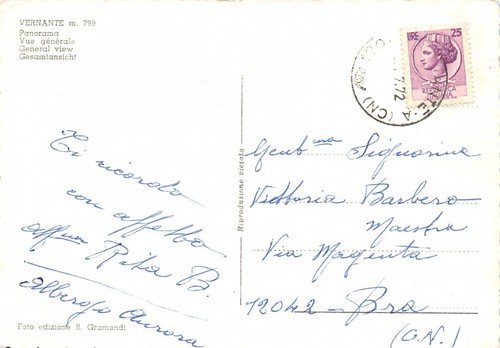 VERNANTE m. 799
Panorama
Vue générale
General view
Gesamtansicht
Ti ricordo
con affetto
Aff.ma Rita B.
Albergo Aurora
Foto edizione B. Gramondi
Riproduzione vietata
LIRE 25
7.72
(CN)
Gent.ma Signorina
Vittoria Barbero
Maestra
Via Magenta
12042 - Bra
(CN.)